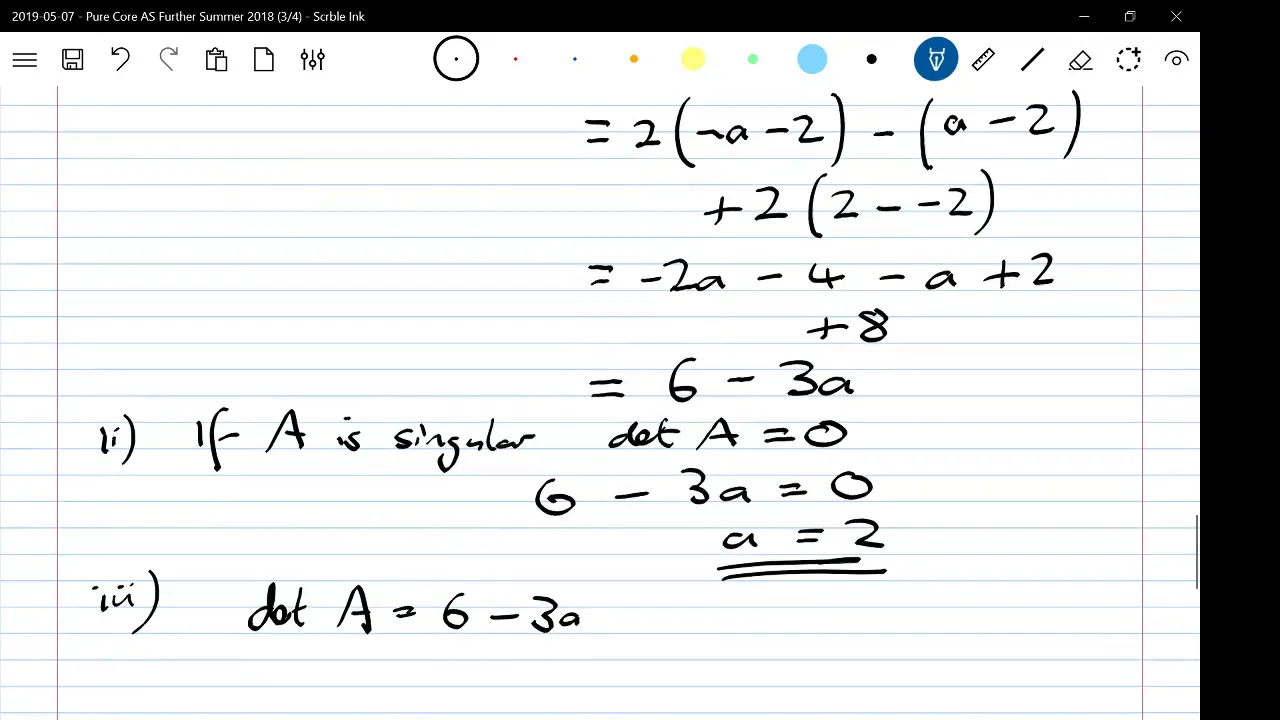 2019-05-07 - Pure Core AS Further Summer 2018 (3/4) - Scrble Ink
= 2(-a - 2) - (a - 2)
+ 2(2 - -2)
= -2a - 4 - a + 2
+ 8
= 6 - 3a
ii) If A is singular det A = 0
6 - 3a = 0
a = 2
iii) det A = 6 - 3a